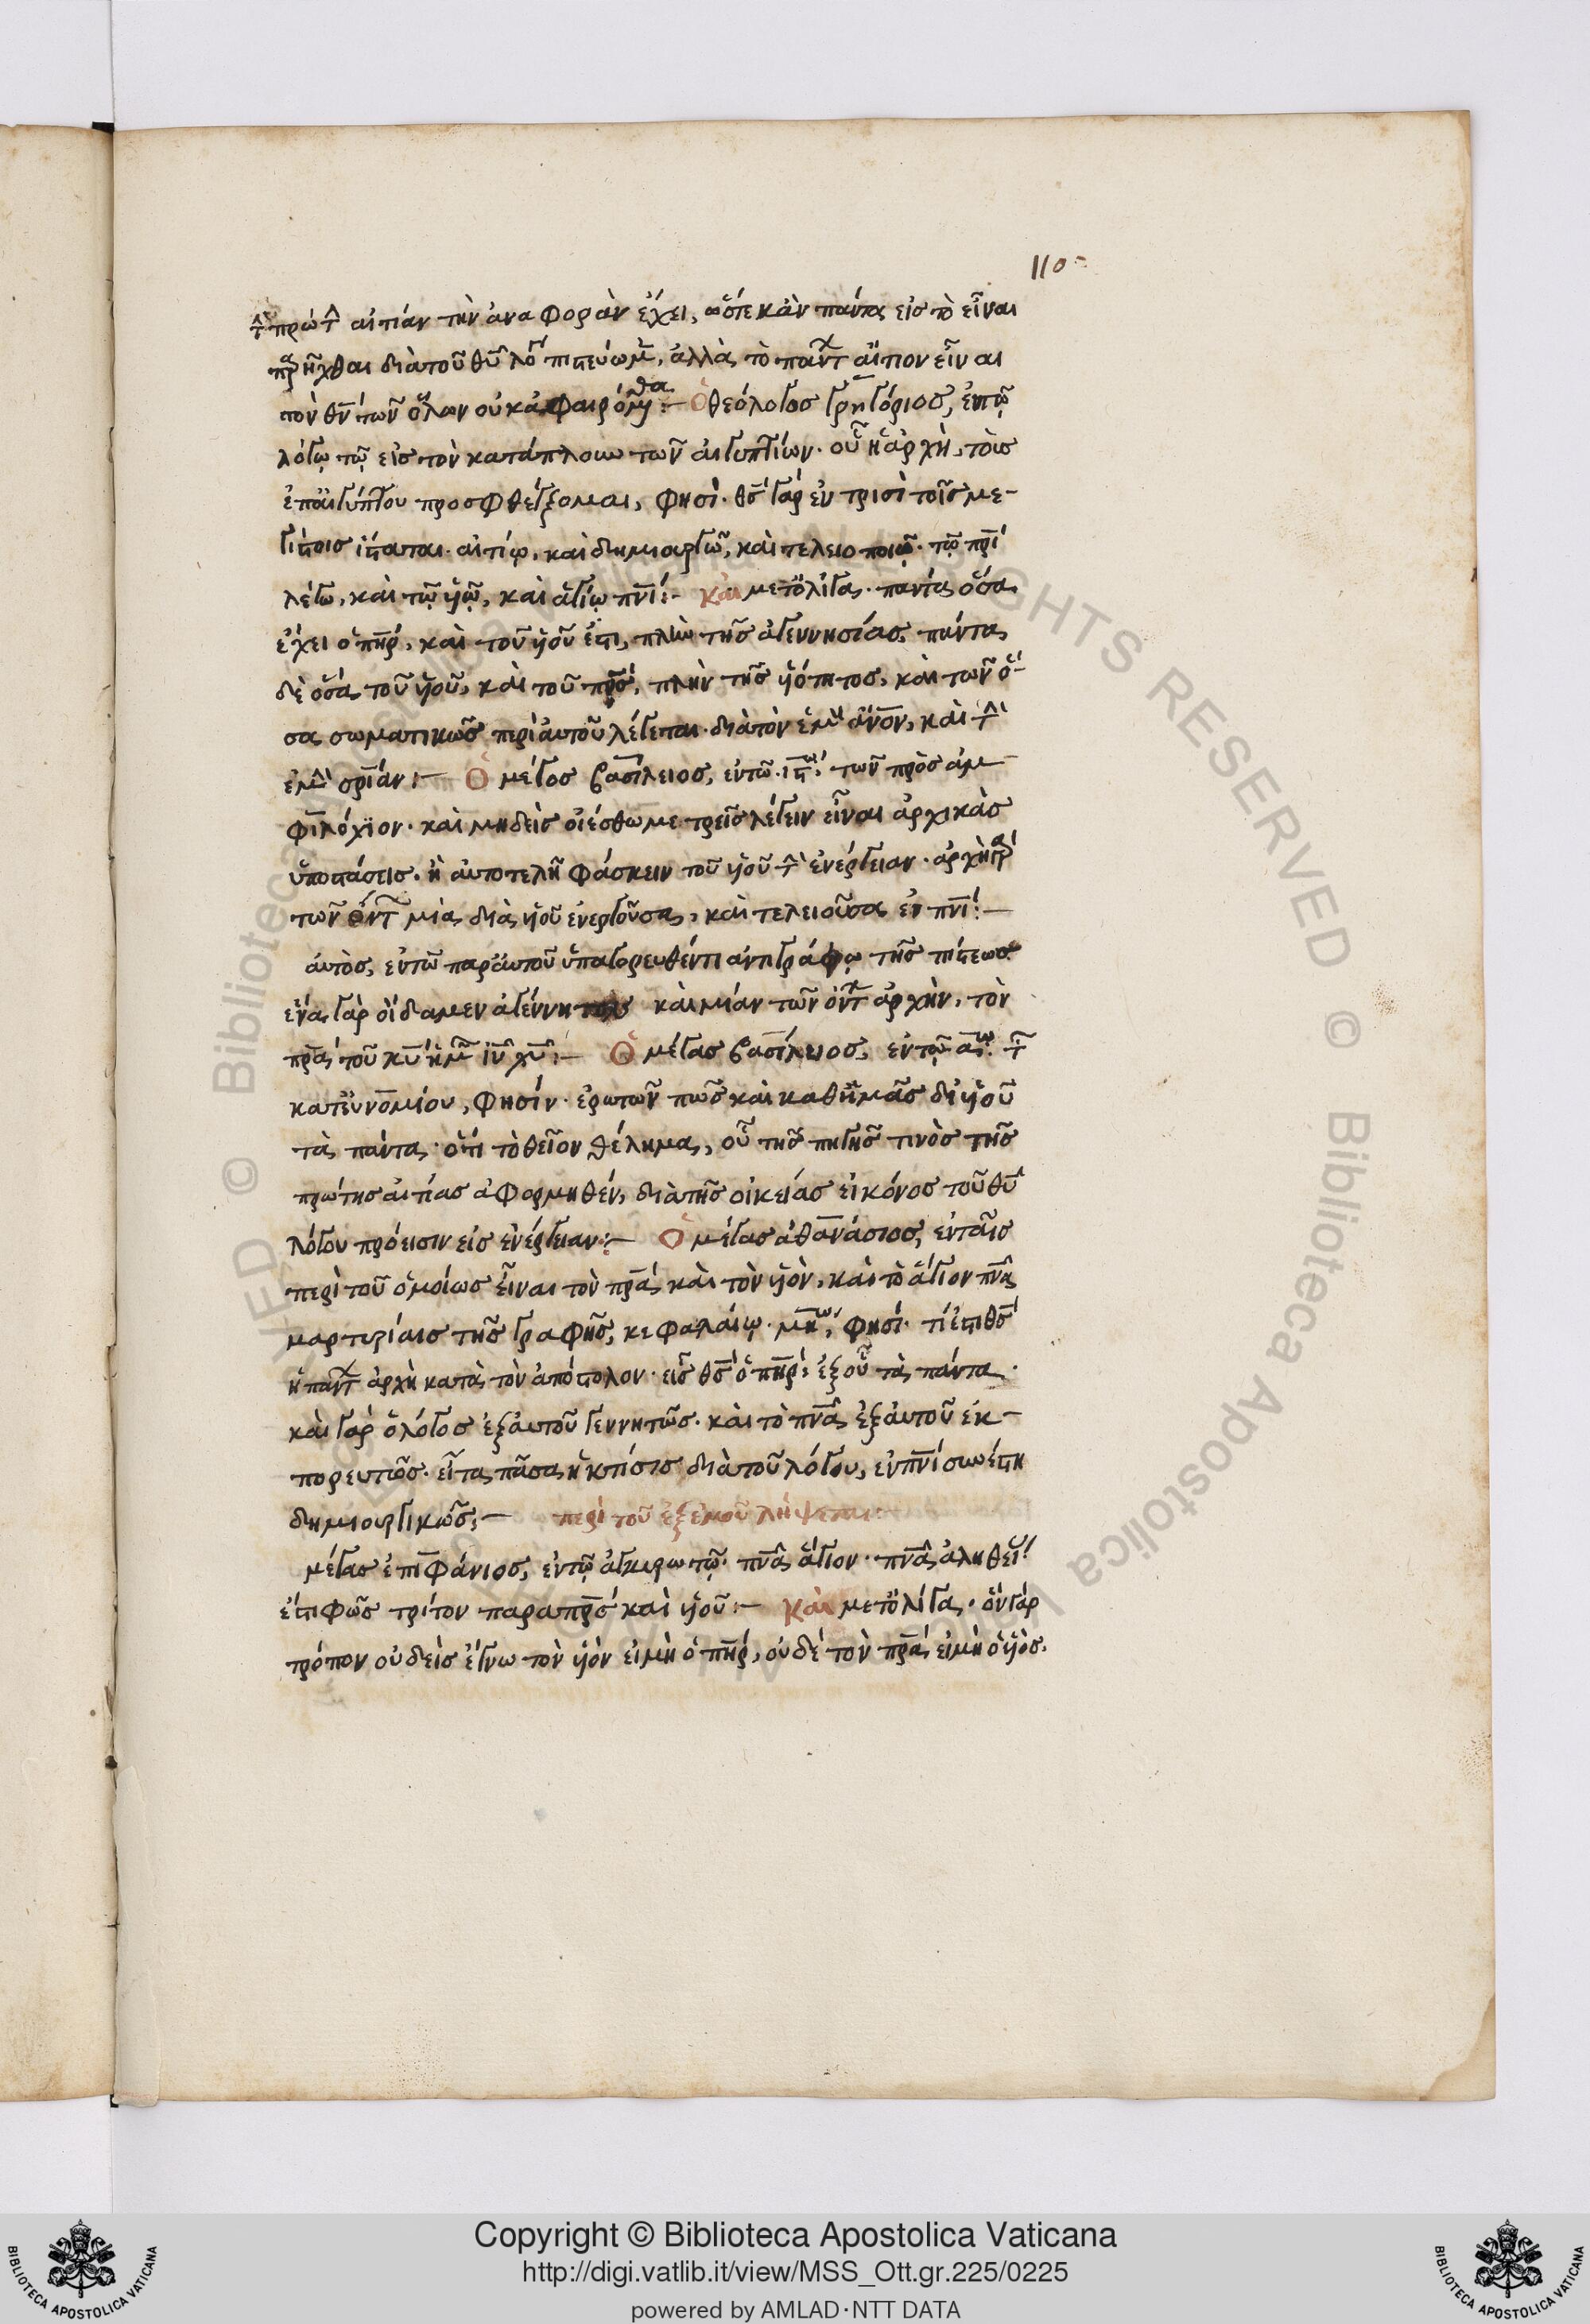 110
τὴν πρώτην αἰτίαν τὴν ἀναφορὰν ἔχει, ὥστε κἂν πάντα εἰς τὸ εἶναι
παρῆχθαι διὰ τοῦ θῦ λόγου πιστεύωμεν, ἀλλὰ τὸ πάντων αἴτιον εἶναι
τὸν θν̄ τῶν ὅλων οὐκ ἀφαιρόμεθα :— Ὁ θεόλογος γρηγόριος, ἐν τῷ
λόγῳ τῷ εἰς τὸν κατάπλουν τῶν αἰγυπτίων· οὗ ἡ ἀρχὴ, τοῖς
ἐπ' αἰγύπτου προσφθέγξομαι, φησί· θς̄ γὰρ ἐν τρισὶ τοῖς με-
γίστοις ἵσταται· αἰτίῳ, καὶ δημιουργῷ, καὶ τελειοποιῷ· τῷ πρ̄ι
λέγω, καὶ τῷ υἱῷ, καὶ ἁγίῳ πνῑ :— καὶ μετ' ὀλίγα· πάντα ὅσα
ἔχει ὁ πη̄ρ, καὶ τοῦ υἱοῦ ἐστι, πλὴν τῆς ἀγεννησίας, πάντα
δὲ ὅσα τοῦ υἱοῦ, καὶ τοῦ πρ̄ς, πλὴν τῆς υἱότητος, καὶ τῶν ὅ-
σα σωματικῶς περὶ αὐτοῦ λέγεται· διὰ τὸν ἐμὸν ἄνο̄ν, καὶ τὴν
ἐμὴν σρ̄ίαν :— Ὁ μέγας βασίλειος, ἐν τῷ ιςῳ τῶν πρὸς ἀμ-
φιλόχϊον· καὶ μηδεὶς οἰέσθω με τρεῖς λέγειν εἶναι ἀρχικὰς
ὑποστάσεις· ἢ ἀυτοτελῆ φάσκειν τοῦ υἱοῦ τὴν ἐνέργειαν· ἀρχὴ γὰρ
τῶν ὄντων μία διὰ υἱοῦ ἐνεργοῦσα, καὶ τελειοῦσα ἐν πνῑ :—
ἀυτὸς, ἐν τῷ παρ' ἀυτοῦ ὑπαγορευθέντι ἀντιγράφῳ τῆς πίστεως·
ἕνα γὰρ οἴδαμεν ἀγέννητον καὶ μίαν τῶν ὄντων ἀρχὴν, τὸν
πρ̄α τοῦ κῡ ἡμῶν ἰῡ χῡ :— Ὁ μέγας βασίλειος, ἐν τῷ αῳ τῶν
κατ' εὐνομίου, φησίν· ἐρωτῶν πῶς καὶ καθ' ἡμᾶς δι' υἱοῦ
τὰ πάντα· ὅτι τὸ θεῖον θέλημα, οὗ τῆς πηγῆς τινὸς τῆς
πρώτης ἀιτίας ἀφορμηθέν, διὰ τῆς οἰκείας εἰκόνος τοῦ θῡ
λόγου πρόεισιν εἰς ἐνέργειαν :— Ὁ μέγας ἀθανάσιος, ἐν ταῖς
περὶ τοῦ ὁμοίως εἶναι τὸν πρ̄α καὶ τὸν υἱὸν, καὶ τὸ ἅγιον πνᾱ
μαρτυρίαις τῆς γραφῆς, κεφαλαίῳ μηῳ, φησί· τί ἐστι θς̄
ἡ πάντων ἀρχὴ κατὰ τὸν ἀπόστολον· εἷς θς̄ ὁ πη̄ρ, ἐξ οὗ τὰ πάντα·
καὶ γὰρ ὁ λόγος ἐξ ἀυτοῦ γεννητῶς· καὶ τὸ πνᾱ ἐξ ἀυτοῦ ἐκ-
πορευτῶς· εἶτα πᾶσα ἡ κτίσις διὰ τοῦ λόγου, ἐν πνῑ συνέστη
δημιουργικῶς :— περὶ τοῦ ἐξ ἐμοῦ λήψεται
μέγας ἐπιφάνιος, ἐν τῷ ἀγκυρωτῷ· πνᾱ ἅγιον· πνᾱ ἀληθείας
ἐστι φῶς τρίτον παρὰ πρ̄ς καὶ υἱοῦ :— καὶ μετ' ὀλίγα· ὃν γὰρ
τρόπον οὐδεὶς ἔγνω τὸν υἱὸν εἰ μὴ ὁ πη̄ρ, οὐδὲ τὸν πρ̄α εἰ μὴ ὁ υἱὸς·
Copyright © Biblioteca Apostolica Vaticana
http://digi.vatlib.it/view/MSS_Ott.gr.225/0225
powered by AMLAD·NTT DATA